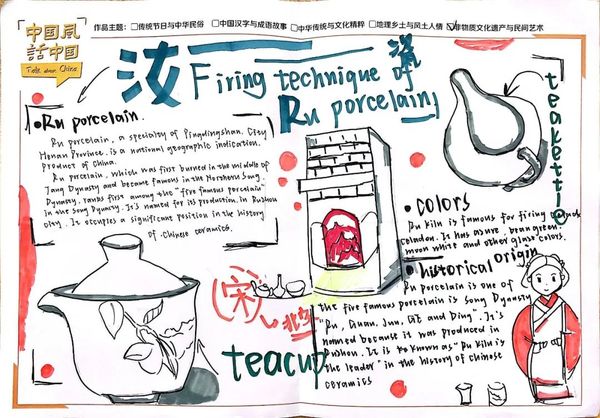 中国风
話中国
Talk about China
作品主题：□传统节日与中华民俗 □中国汉字与成语故事 □中华传统与文化精粹 □地理乡土与风土人情 ☑非物质文化遗产与民间艺术
汝 瓷
Firing technique of
Ru porcelain
Ru porcelain.
Ru porcelain, a specialty of Pingdingshan, City
Henan Province, is a national geographic indication.
product of China.
Ru porcelain, which was first burned in the middle of
Tang Dynasty and became famous in the Northern Song
Dynasty, ranks first among the "five famous porcelain"
in the Song Dynasty. It's named for its production in Ruzhou
It occupies a significant position in the history
of Chinese ceramics.
teakettle
colors
Ru kiln is famous for firing
celadon. It has azure, bean green.
moon white and other glaze colors.
historical origin
Ru porcelain is one of
the five famous porcelain is Song Dynasty
"Ru, Guan, Jun, and Ding". It's
named because it was produced in
Ruzhou. It is to known as "Ru kiln is
the leader" in the history of Chinese
ceramics
宋
teacup